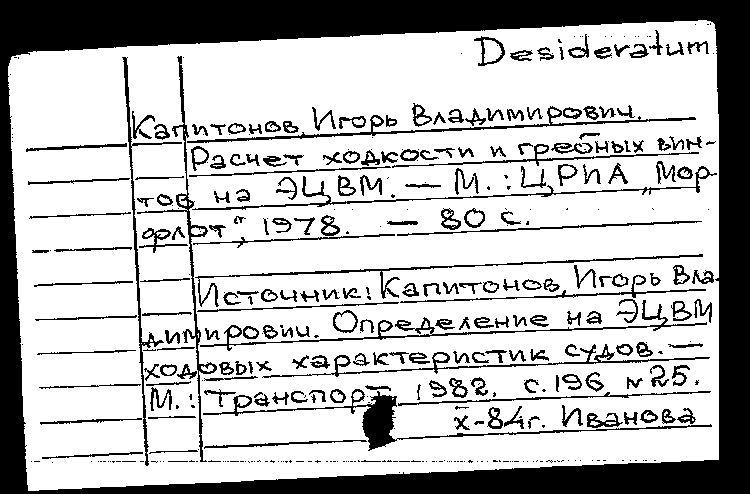 Desideratum
Капитонов, Игорь Владимирович.
Расчет ходкости и гребных вин-
тов на ЭЦВМ. — М.: ЦРИА „Мор-
флот", 1978. — 80 с.
Источник: Капитонов, Игорь Вла-
димирович. Определение на ЭЦВМ
ходовых характеристик судов. —
М.: Транспорт, 1982. с.196, №25.
х-84г. Иванова